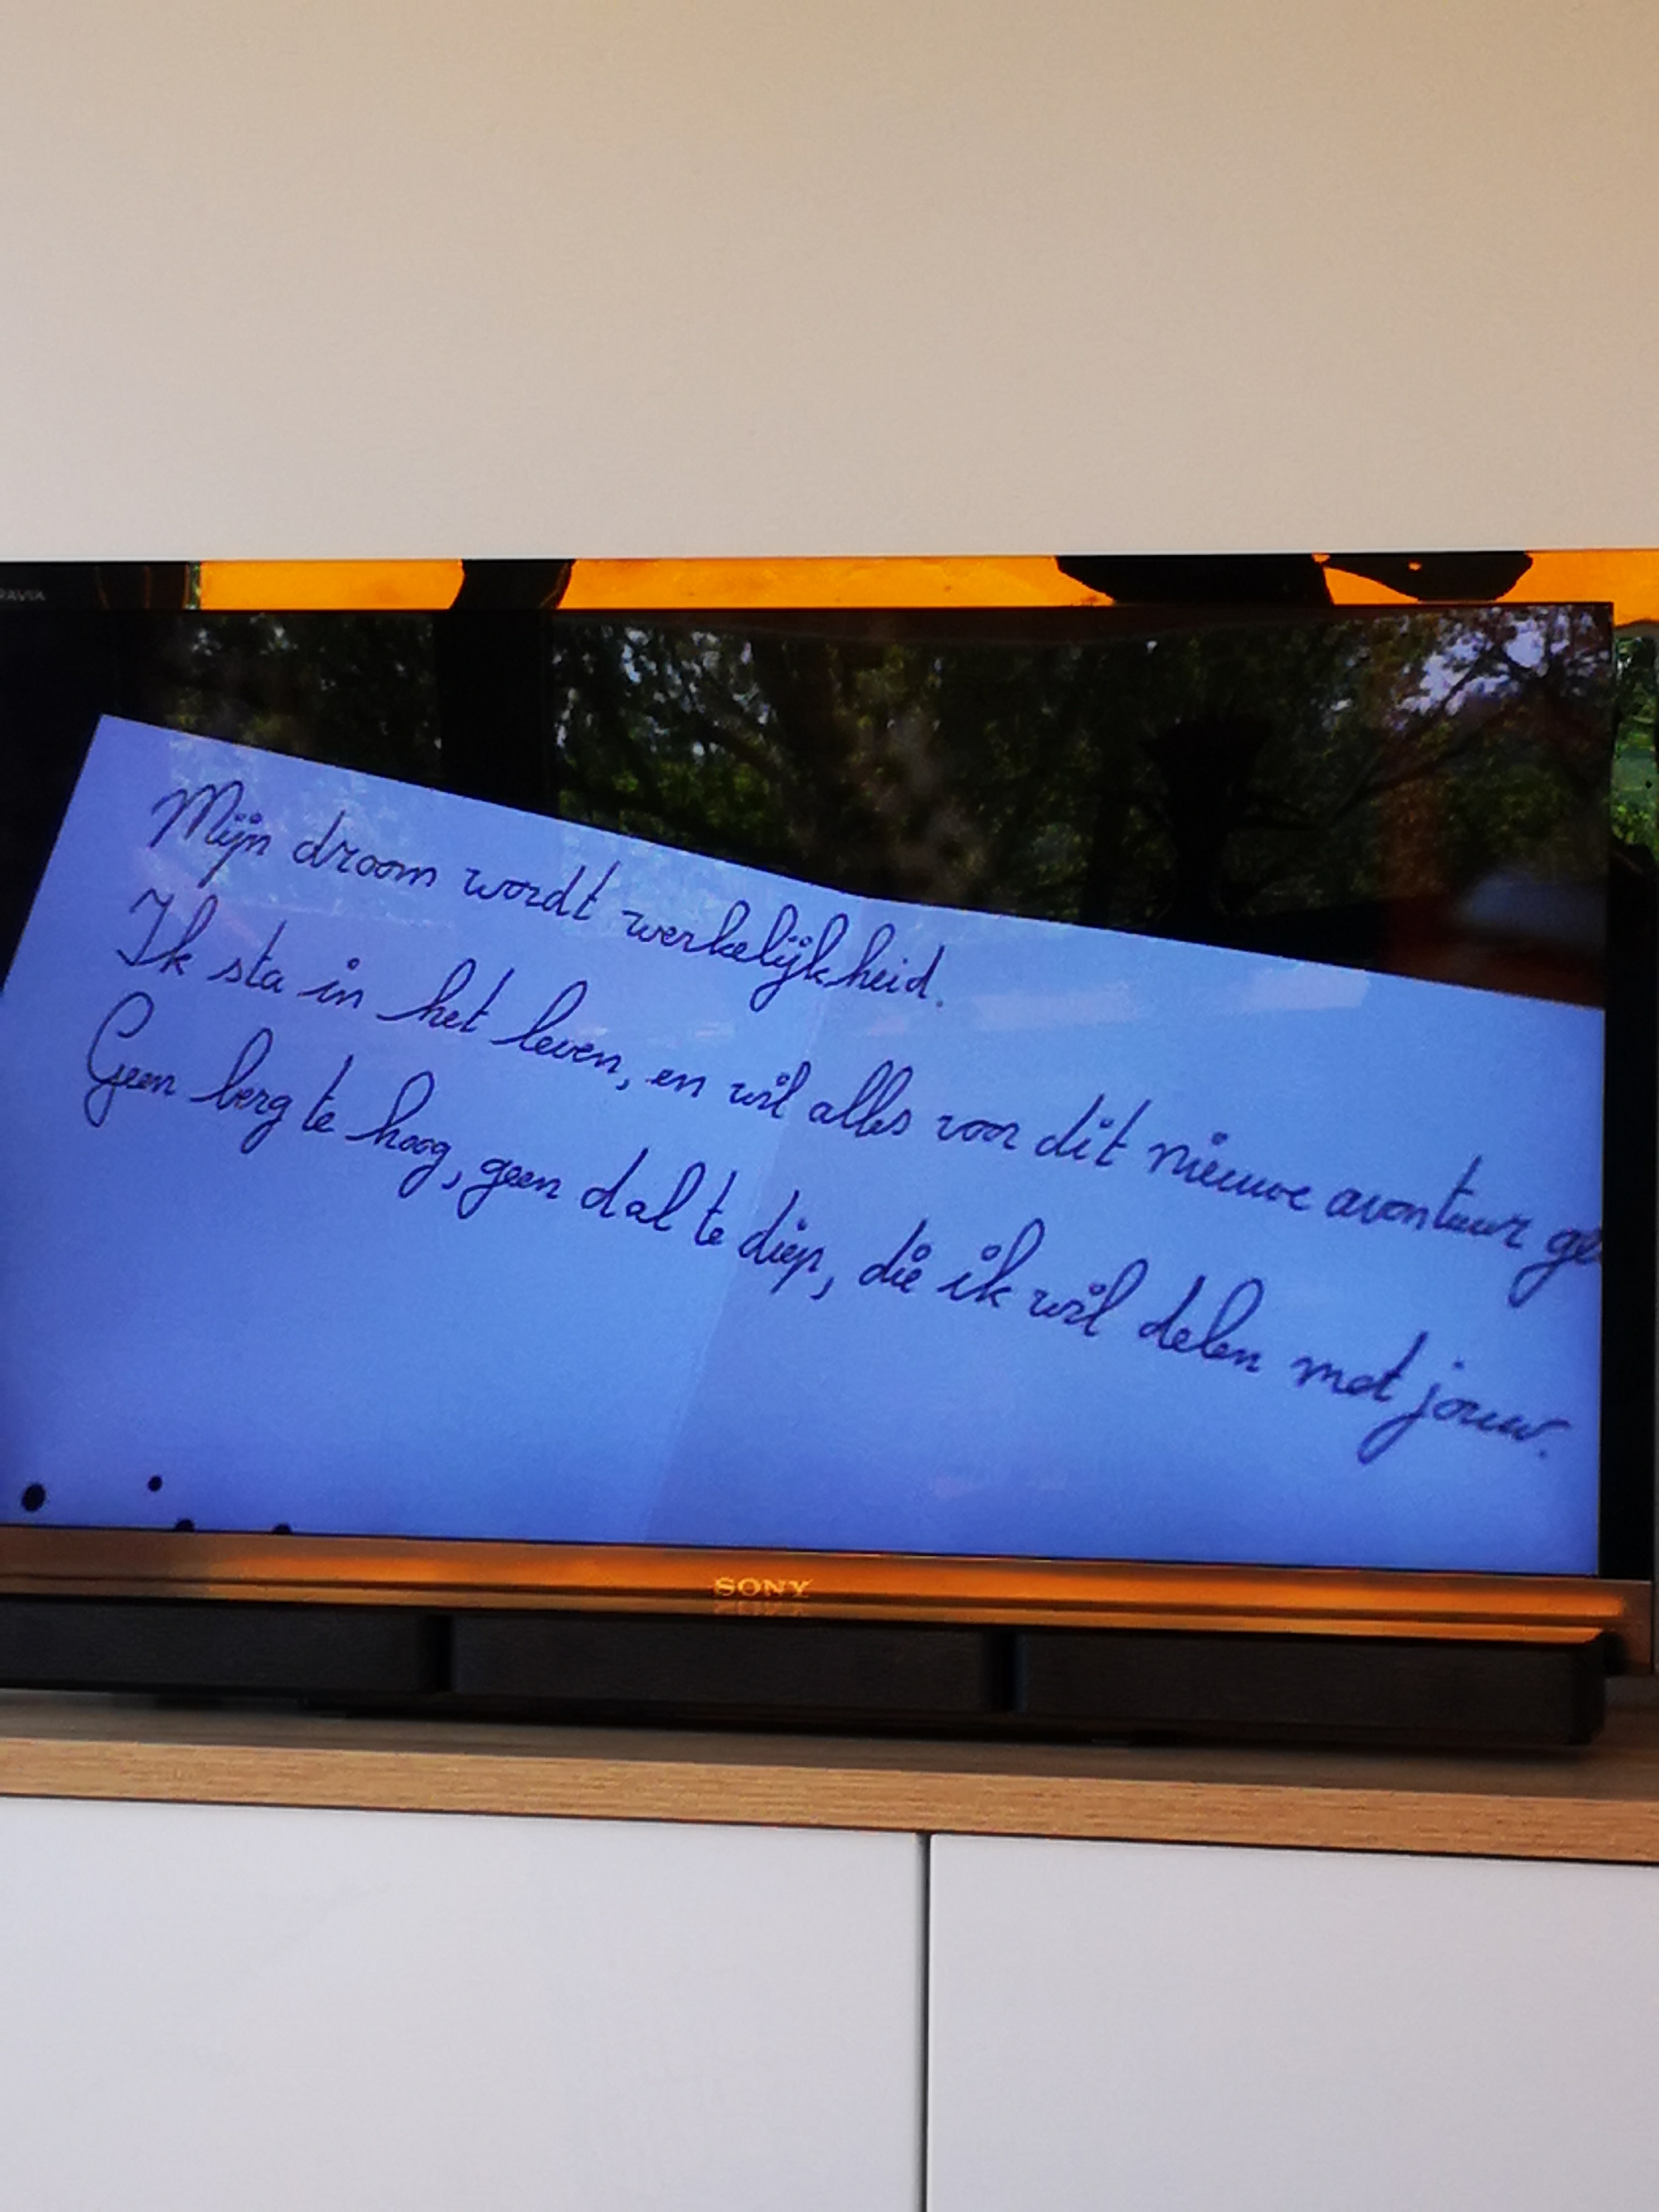 RAVIA
Mijn droom wordt werkelijkheid.
Ik sta in het leven, en wil alles voor dit nieuwe avontuur ge
Geen berg te hoog, geen dal te diep, die ik wil delen met jouw.
SONY